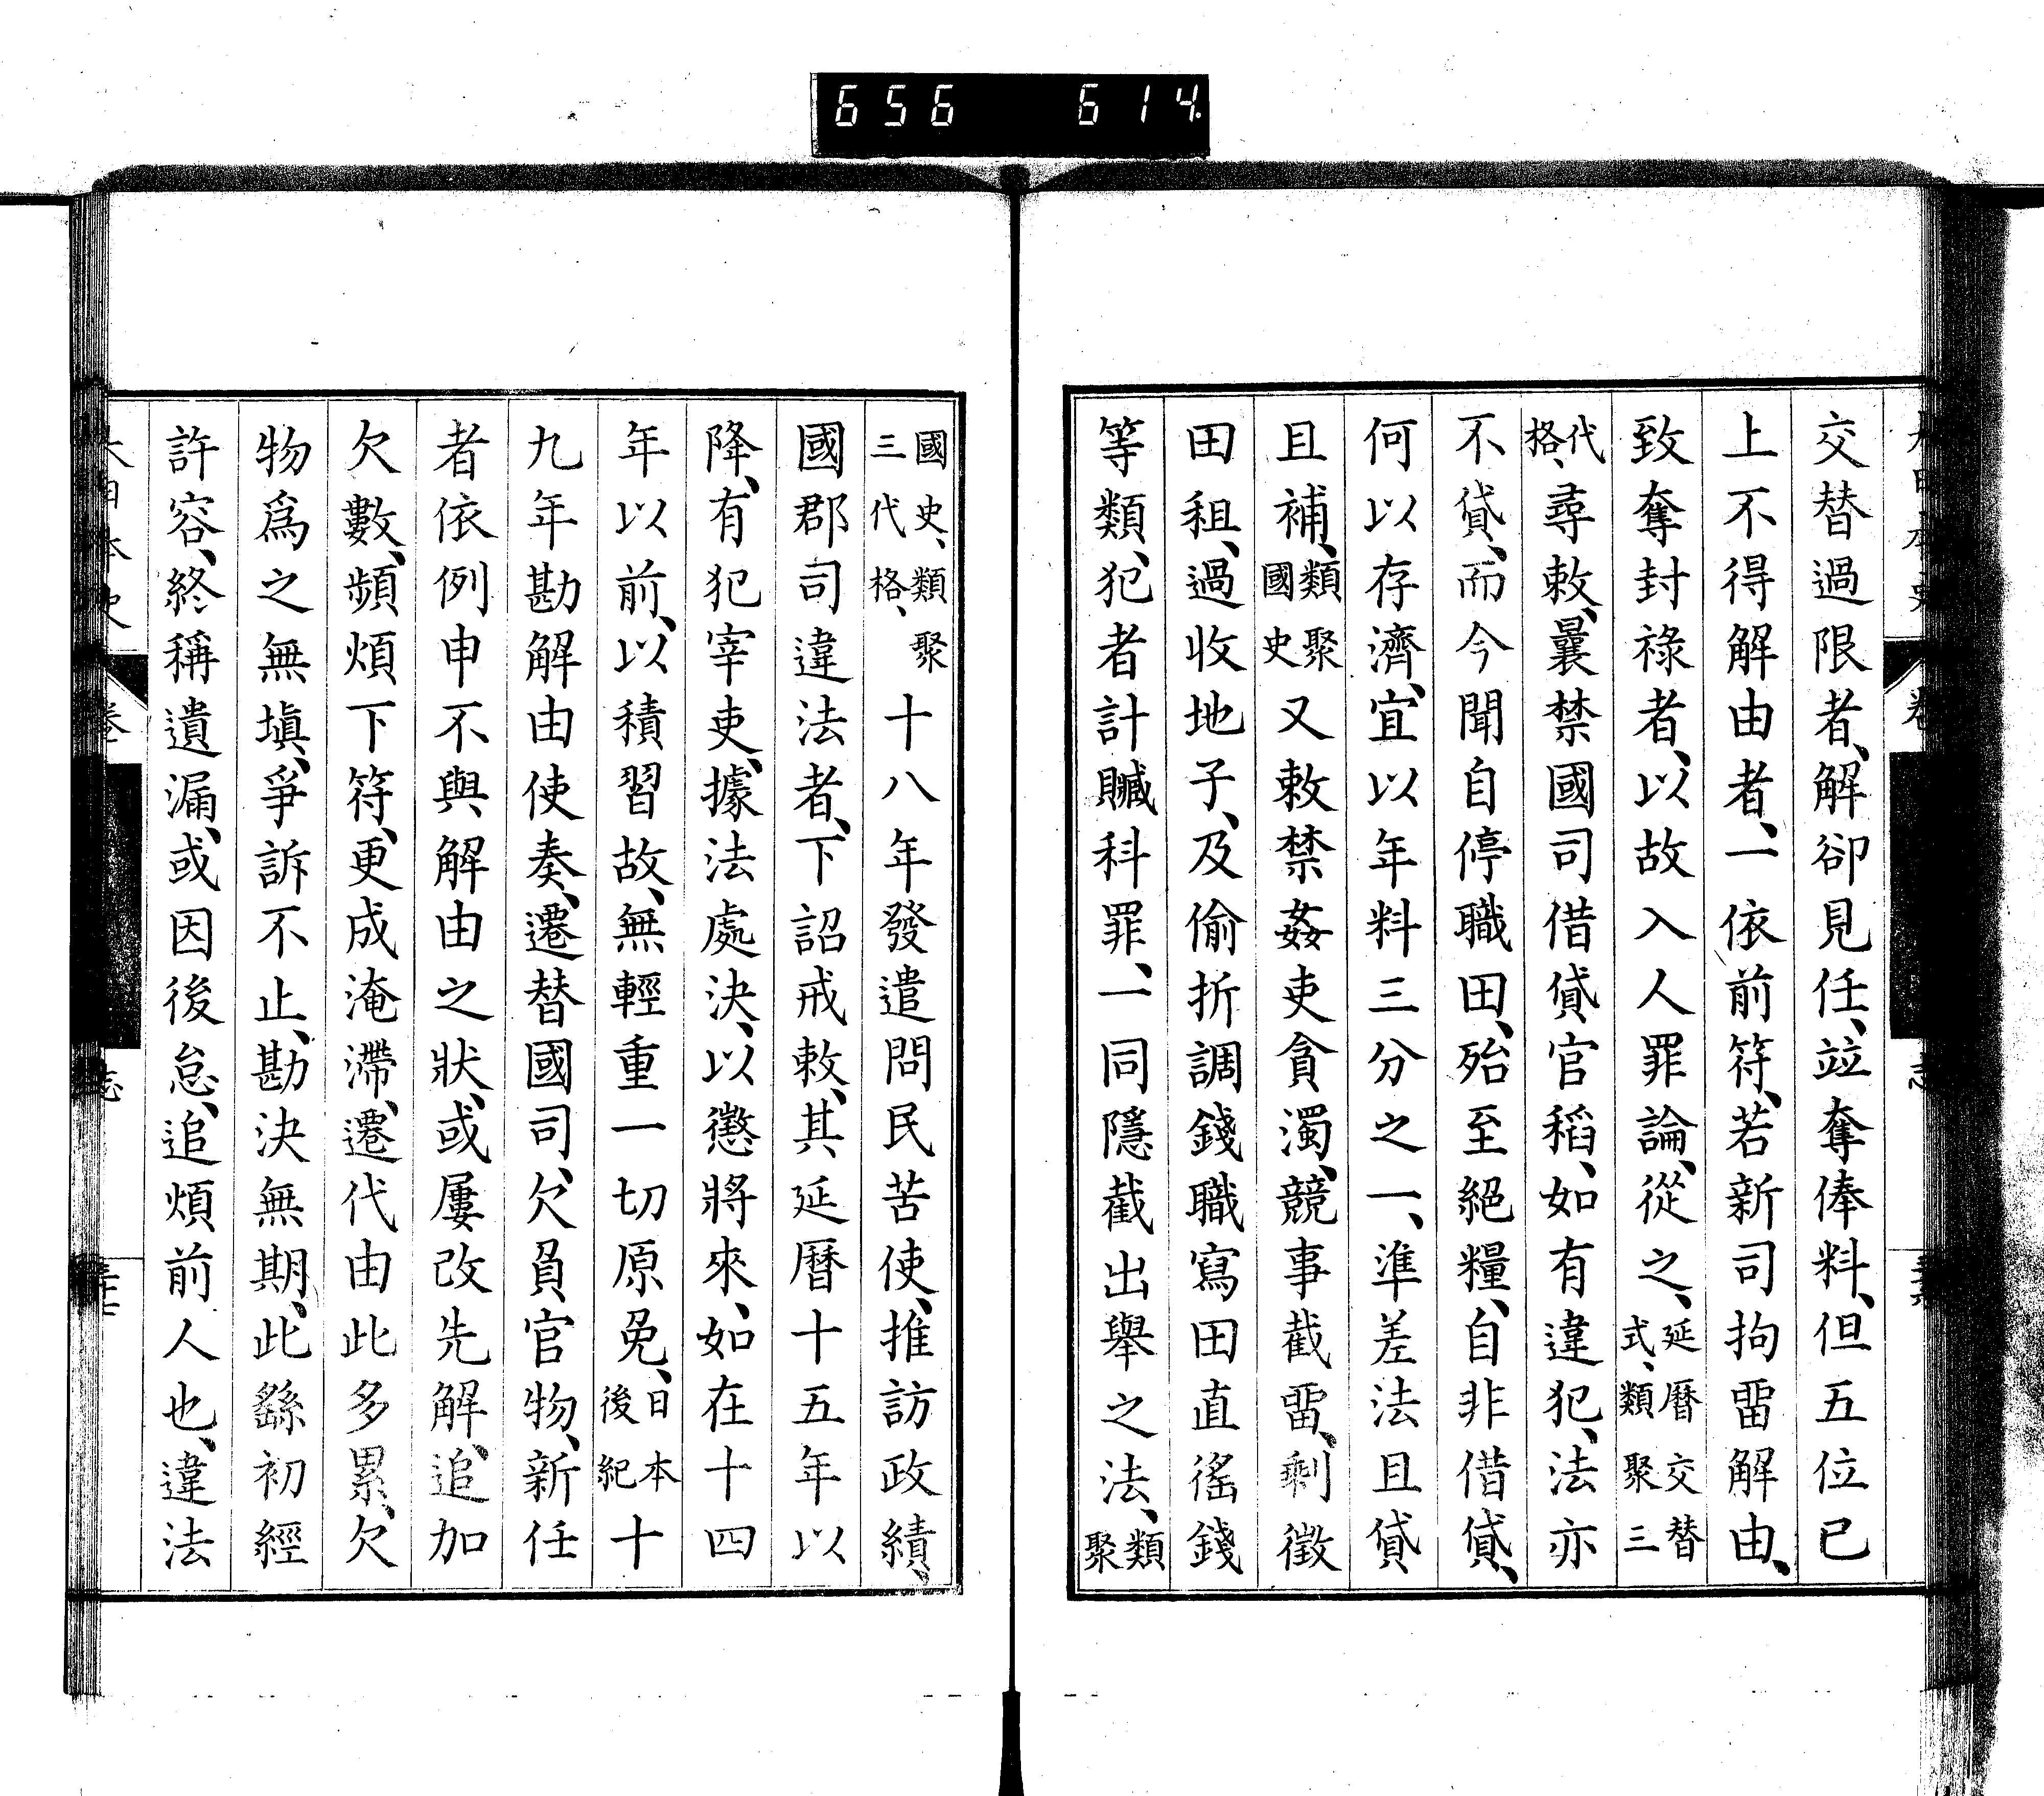 656 614
交替過限者、解卻見任、竝奪俸料、但五位已
上不得解由者、一依前符、若新司拘畱解由、
致奪封祿者、以故入人罪論、從之、延曆交替式、類聚三
代格、尋敕、曩禁國司借貸官稻、如有違犯、法亦
不貸、而今聞自停職田、殆至絕糧、自非借貸、
何以存濟、宜以年料三分之一、準差法且貸
且補、類聚國史又敕禁姦吏貪濁、競事截畱、剩徵
田租、過收地子、及偷折調錢職寫田直徭錢
等類、犯者計贓科罪、一同隱截出舉之法、類聚
國史、類聚三代格、十八年發遣問民苦使、推訪政績、
國郡司違法者、下詔戒敕、其延曆十五年以
降、有犯宰吏、據法處決、以懲將來、如在十四
年以前、以積習故、無輕重一切原免、日本後紀十
九年勘解由使奏、遷替國司、欠負官物、新任
者依例申不與解由之狀、或屢改先解、追加
欠數、頻煩下符、更成淹滯、遷代由此多累、欠
物爲之無塡、爭訴不止、勘決無期、此繇初經
許容、終稱遺漏、或因後怠、追煩前人也、違法
大日本史
卷
志